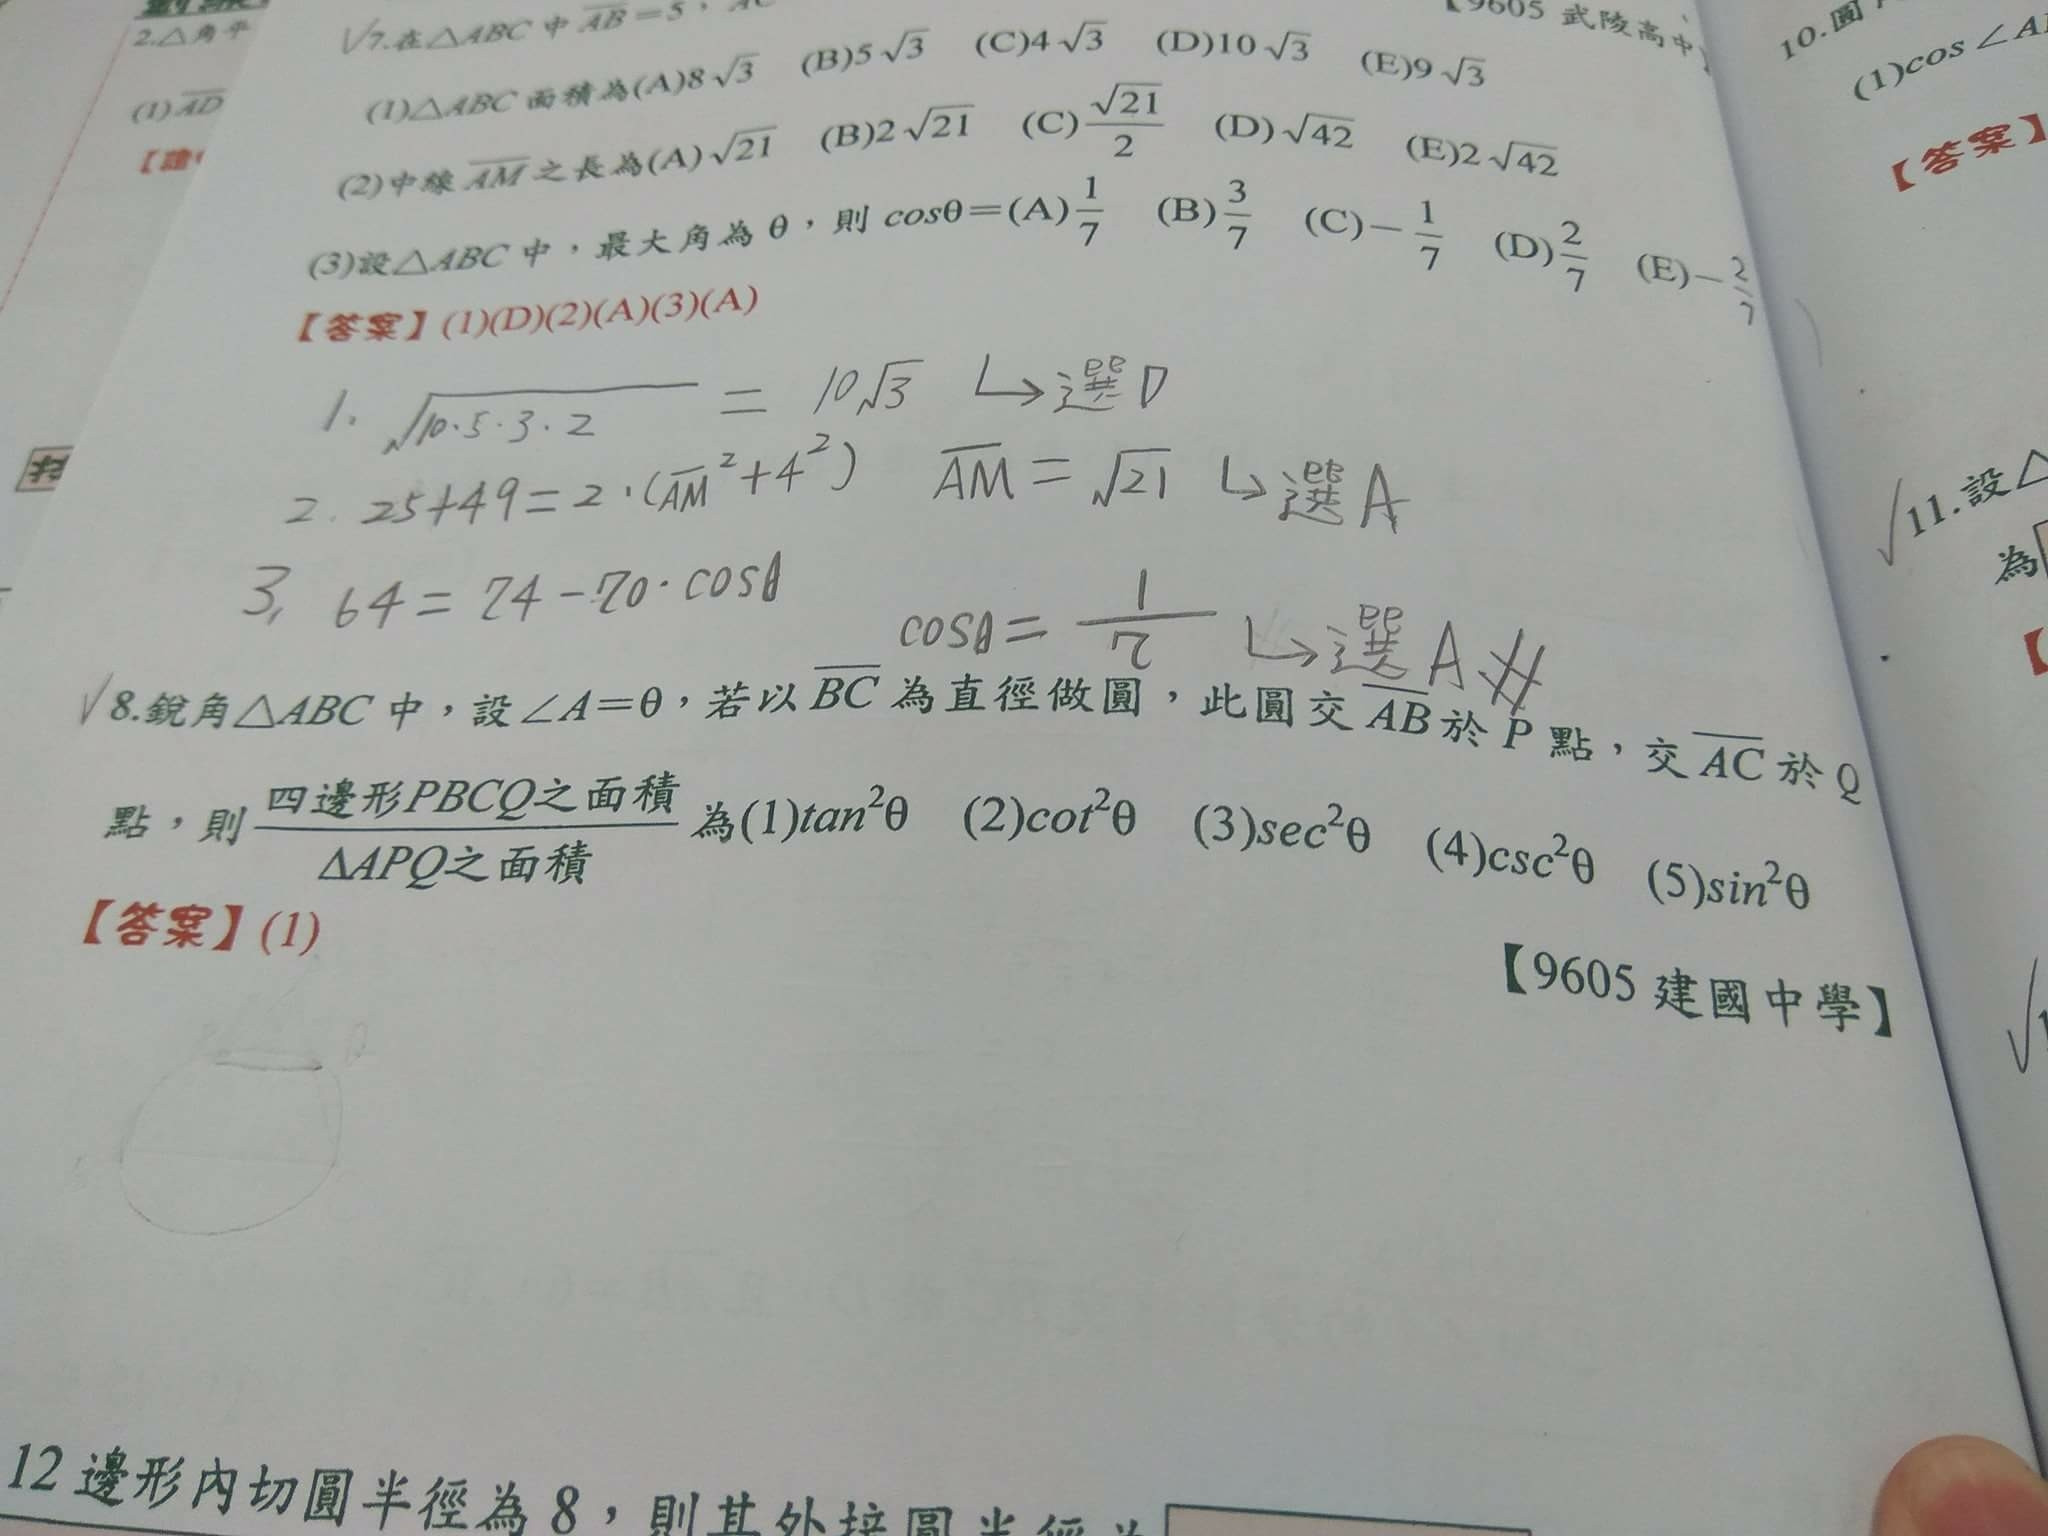 2.△角平
(1)AD
√7.在△ABC 中 AB=5,AC
【9605 武陵高中】
(1)△ABC 面積為(A)8√3 (B)5√3 (C)4√3 (D)10√3 (E)9√3
(2)中線 AM 之長為(A)√21 (B)2√21 (C)√21/2 (D)√42 (E)2√42
(3)設△ABC 中,最大角為 θ,則 cosθ=(A)1/7 (B)3/7 (C)-1/7 (D)2/7 (E)-2/7
【答案】(1)(D)(2)(A)(3)(A)
1. √10·5·3·2 = 10√3 ↳選D
2. 25+49=2·(AM²+4²) AM=√21 ↳選A
3, 64=74-70·cosθ cosθ=1/7 ↳選A #
√8.銳角△ABC 中,設∠A=θ,若以 BC 為直徑做圓,此圓交 AB 於 P 點,交 AC 於 Q
點,則 四邊形PBCQ之面積/ΔAPQ之面積 為(1)tan²θ (2)cot²θ (3)sec²θ (4)csc²θ (5)sin²θ
【答案】(1)
【9605 建國中學】
12 邊形內切圓半徑為 8,則其外接圓半徑為
10.圓
(1)cos∠A
【答案】
√11.設△
為